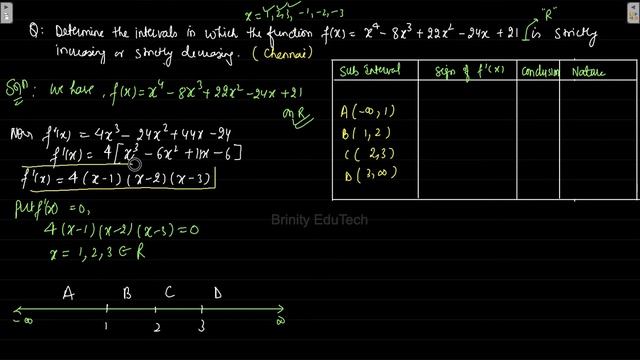 x = 1, 2, 3, -1, -2, -3
"R"
Q: Determine the intervals in which the function f(x) = x⁴ - 8x³ + 22x² - 24x + 21 is strictly
increasing or strictly decreasing. (Chennai)
Soln: We have, f(x) = x⁴ - 8x³ + 22x² - 24x + 21
on R
Now f'(x) = 4x³ - 24x² + 44x - 24
f'(x) = 4[x³ - 6x² + 11x - 6]
f'(x) = 4(x-1)(x-2)(x-3)
Put f'(x) = 0,
4(x-1)(x-2)(x-3) = 0
x = 1, 2, 3 ∈ R
A B C D
-∞ 1 2 3 ∞
Sub Interval Sign of f'(x) Conclusion Nature
A (-∞, 1)
B (1, 2)
C (2, 3)
D (3, ∞)
Brinity EduTech